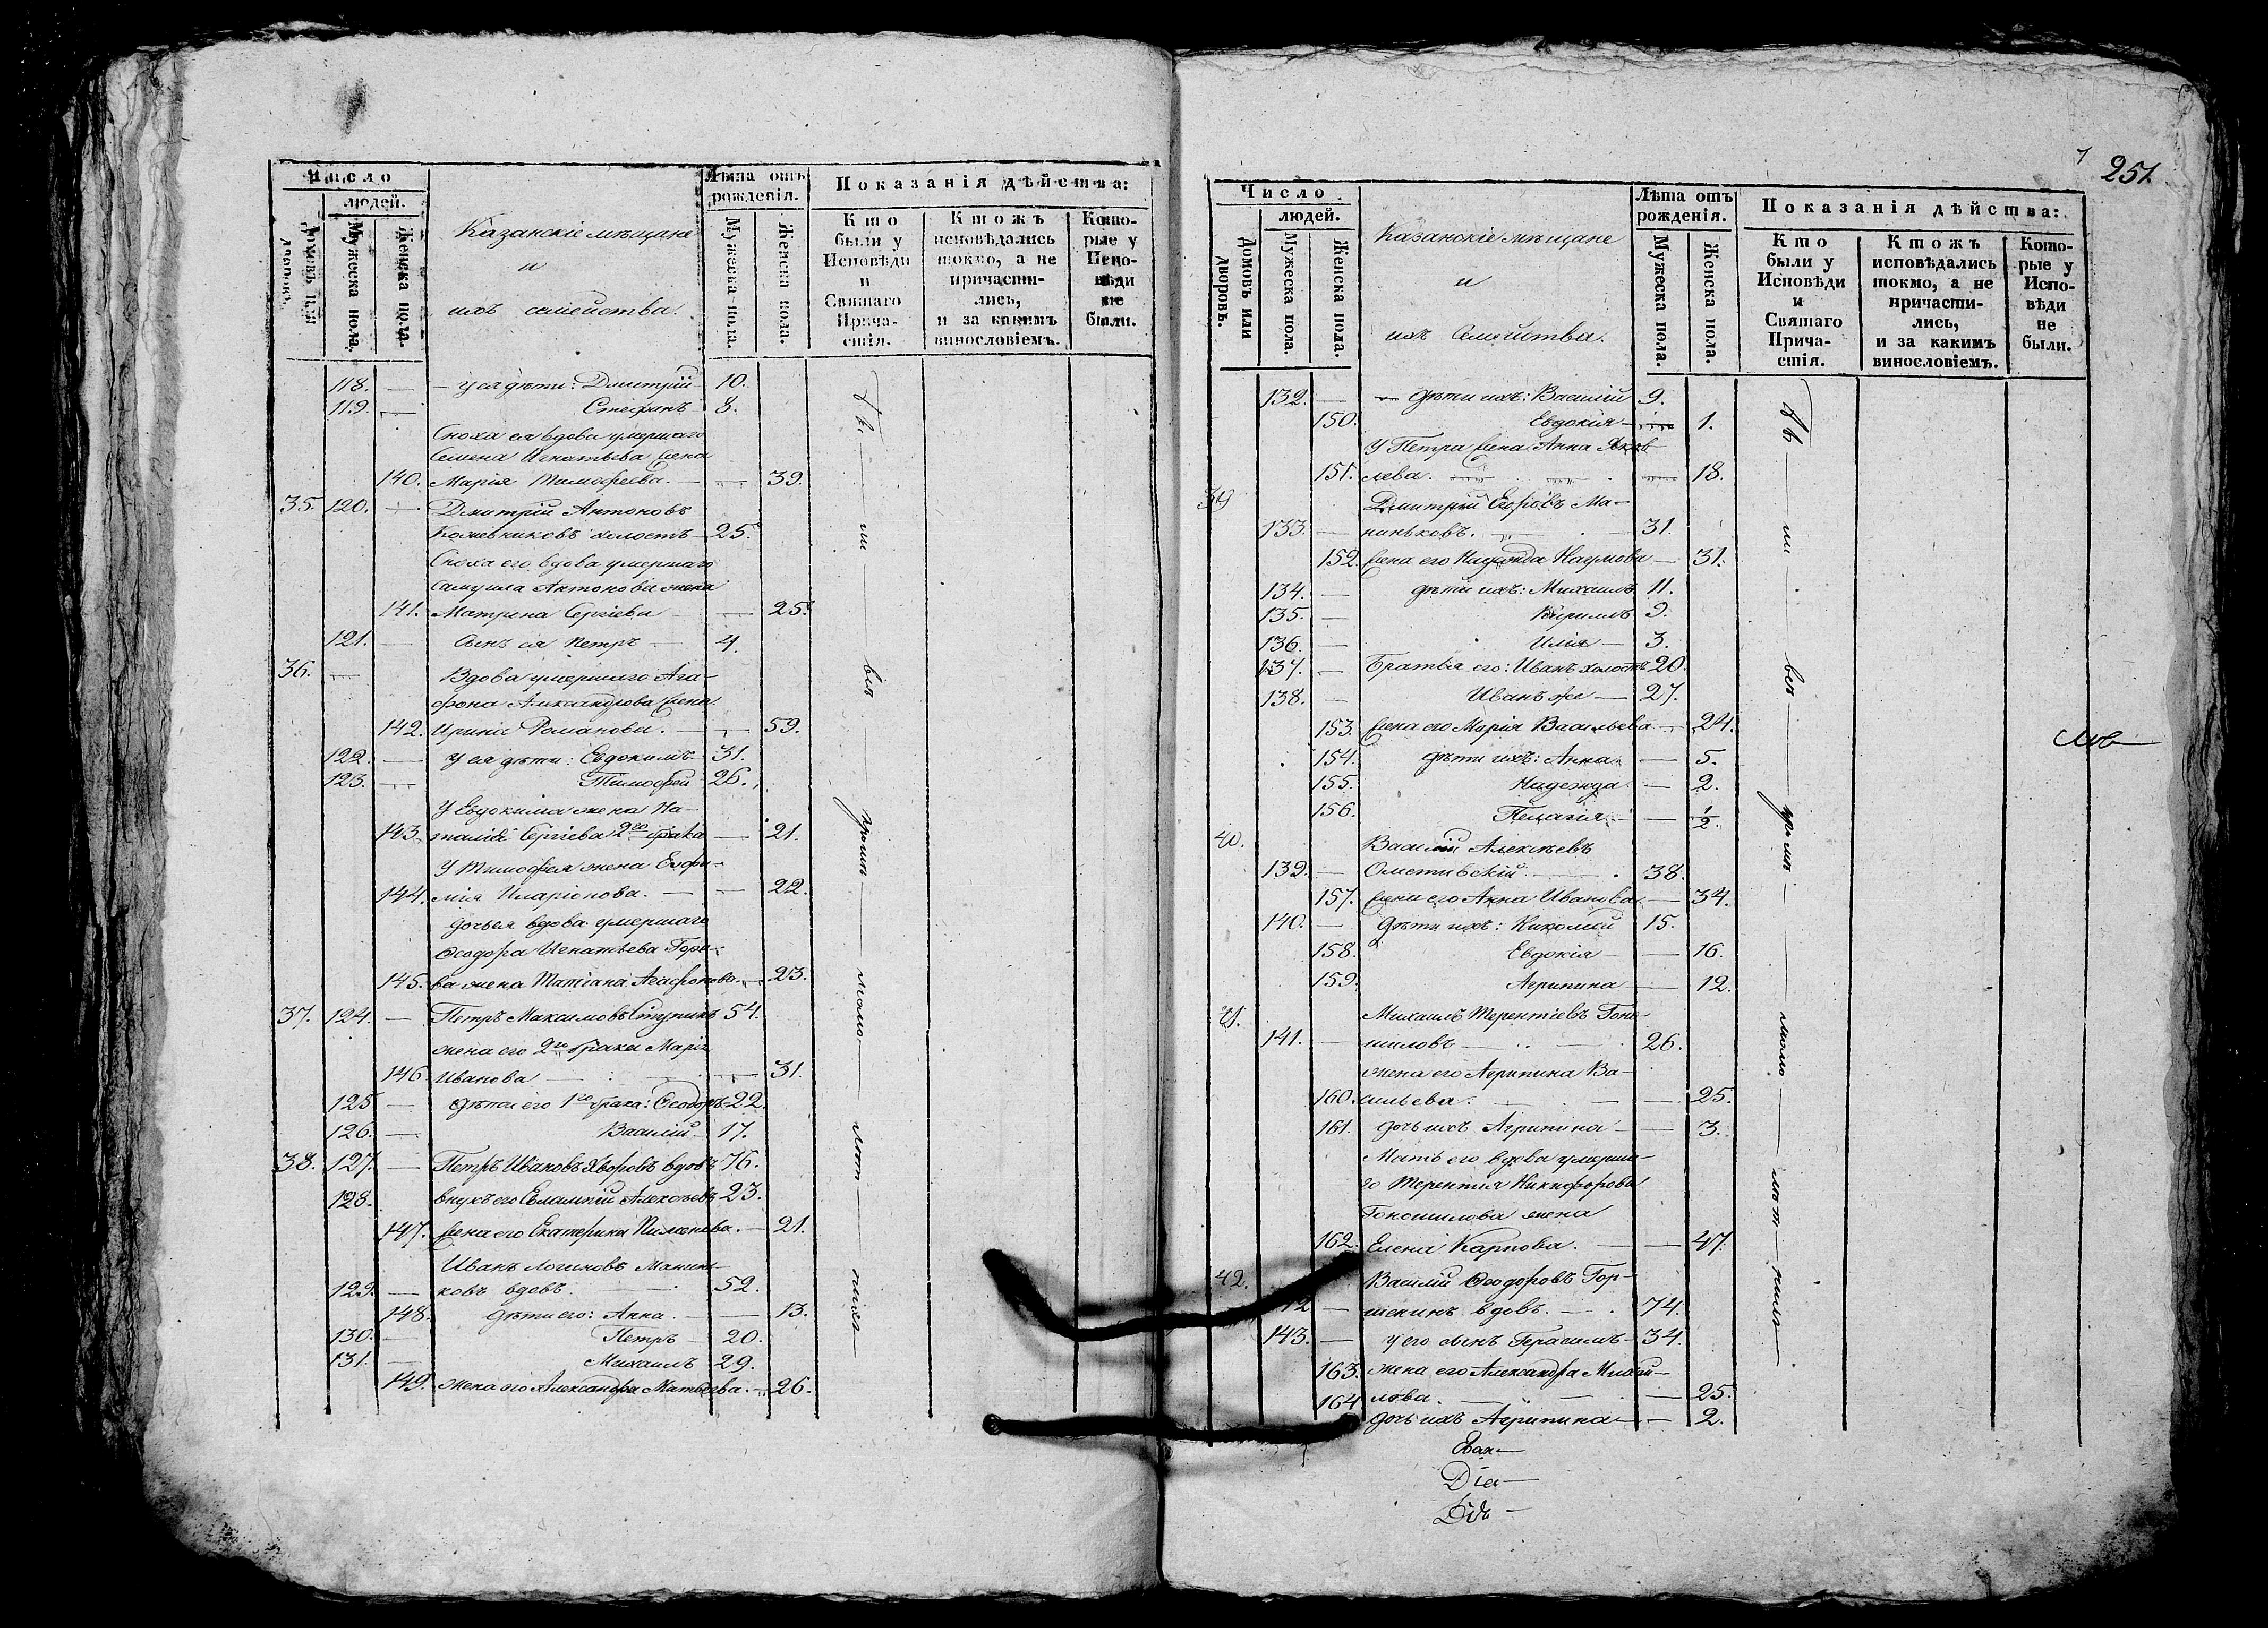 Число
людей.
Домовъ или дворовъ.
Мужеска пола.
Женска пола.
Казанскіе мѣщане
и
ихъ семейства.
Лѣта отъ рожденія.
Мужеска пола.
Женска пола.
Показанія дѣйства:
Кто были у Исповѣди и Святаго Прича-стія.
Ктожъ исповѣдались токмо, а не причасти-лись, и за какимъ винословіемъ.
Кото-рые у Испо-вѣди не были.
118. — у ея дѣти: Дмитрій 10.
119. — Стефанъ 8.
Сноха ея вдова умершаго
Семена Игнатьева жена
140. Марія Тимофеева. — 39.
35. 120. — Дмитрій Антоновъ
Кожевниковъ холостъ 25.
Сноха его вдова умершаго
Самуила Антонова жена
141. Матрена Сергіева — 25.
121. — Сынъ ея Петръ — 4.
36. — Вдова умершаго Ага-
фона Александрова жена
142. Ирина Романова. — 59.
122. — у ея дѣти: Евдокимъ 31.
123. — Тимофей 26.
У Евдокима жена На-
143. талія Сергіева 2го брака — 21.
У Тимофея жена Евфи-
144. мія Иларіонова. — 22.
дочь ея вдова умершаго
Ѳеодора Игнатьева
145. ва жена Татіана Агафонова. — 23.
37. 124. — Петръ Максимовъ Ступинъ 54.
жена его 2го брака Марія
146. Иванова — 31.
125 — дѣти его 1го брака: Ѳеодоръ 22.
126. — Василій — 17.
38. 127. — Петръ Ивановъ Хворовъ вдовъ 76.
128. внукъ его Евлампій Алексѣевъ 23.
147. жена его Екатерина Пименова. — 21.
Иванъ Логиновъ Манинь-
129. — ковъ вдовъ. — 52.
148. дѣти его: Анна. — 13.
130. — Петръ — 20.
131. — Михаилъ 29.
149. жена его Александра Матвѣева. — 26.
251.
Число.
людей.
Домовъ или дворовъ.
Мужеска пола.
Женска пола.
Казанскіе мѣщане
и
ихъ Семейства.
Лѣта отъ рожденія.
Мужеска пола.
Женска пола.
Показанія дѣйства:
Кто были у Исповѣди и Святаго Прича-стія.
Ктожъ исповѣдались токмо, а не причасти-лись, и за какимъ винословіемъ.
Кото-рые у Испо-вѣди не были.
132. — дѣти ихъ: Василій 9.
150. Евдокія — 1.
У Петра жена Анна Яков-
151. лева. — 18.
39 Дмитрій Егоровъ Ма-
133. — ниньковъ. — 31.
152. жена его Надежда Наумова — 31.
134. — дѣти ихъ: Михаилъ 11.
135. — Кирилъ 9.
136. — Илія — 3.
137. — Братья его: Иванъ холостъ 20.
138. — Иванъ же — 27.
153. жена его Марія Васильева — 24.
154. дѣти ихъ: Анна. — 5.
155. Надежда — 2.
156. Пелагія — 1/2.
40. Василій Алексѣевъ
139. — 38.
157. жена его Анна Иванова. — 34.
140. — дѣти ихъ: Николай 15.
158. Евдокія — 16.
159. Агрипина — 12.
41. Михаилъ Терентіевъ Гоно-
141. — шиловъ — 26.
жена его Агрипина Ва-
160. сильева. — 25.
161. дочь ихъ Агрипина — 3.
Мать его вдова умерша-
го Терентія Никифорова
Гоношилова жена
162. Елена Карпова. — 47.
42. Василій Ѳеодоровъ Гор-
шенинъ вдовъ. — 74.
143. — у его сынъ Герасимъ — 34.
163. жена его Александра Михай-
164 лова. — 25.
дочь ихъ Агрипина — 2.